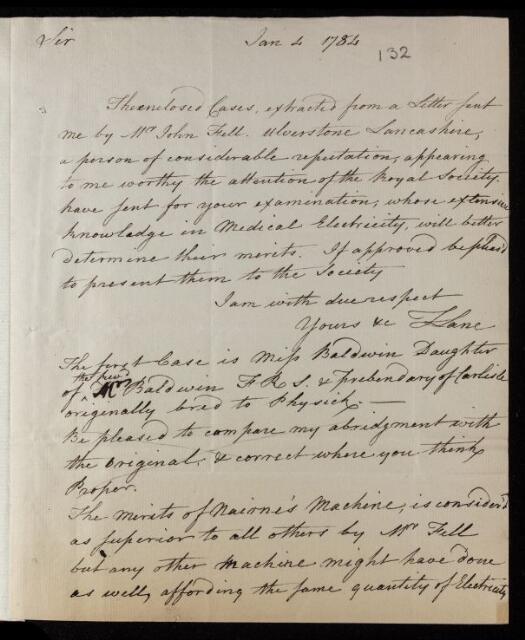 Sir Jan 4 1784
132
The enclosed Cases, extracted from a Letter sent
me by Mr John Fell. Ulverstone Lancashire,
a person of considerable reputation, appearing
to me worthy the attention of the Royal Society
have sent for your examination, whose extensive
knowledge in Medical Electricity, will better
determine their merits. If approved be pleasd
to present them to the Society
I am with due respect
Yours &c TLane
The first Case is Miss Baldwin Daughter
the Revd
of ^ Mr Baldwin F R S. & prebendary of Carlisle
originally bred to Physick. —
Be pleased to compare my abridgment with
the original, & correct where you think
Proper.
The merits of Nairne's Machine, is considerd
as superior to all others by Mr Fell
but any other Machine might have done
as well, affording the same quantity of Electricity